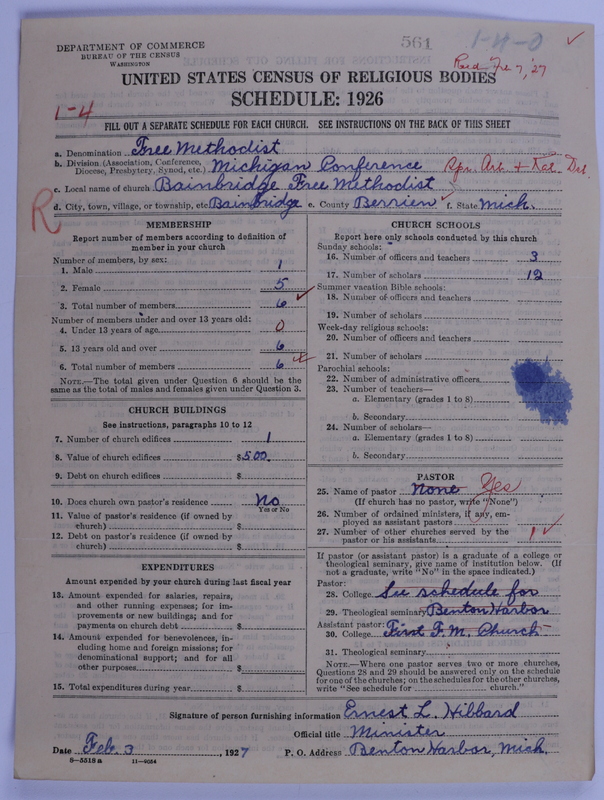 DEPARTMENT OF COMMERCE
BUREAU OF THE CENSUS
WASHINGTON
561
1-4-0
Recd Fe 7, '27
UNITED STATES CENSUS OF RELIGIOUS BODIES
1-4
SCHEDULE: 1926
FILL OUT A SEPARATE SCHEDULE FOR EACH CHURCH. SEE INSTRUCTIONS ON THE BACK OF THIS SHEET
a. Denomination Free Methodist
b. Division (Association, Conference, Diocese, Presbytery, Synod, etc.) Michigan Conference
c. Local name of church Bainbridge Free Methodist
d. City, town, village, or township, etc Bainbridge e. County Berrien f. State Mich.
R
MEMBERSHIP
Report number of members according to definition of
member in your church
Number of members, by sex:
1. Male 1
2. Female 5
3. Total number of members 6
Number of members under and over 13 years old:
4. Under 13 years of age 0
5. 13 years old and over 6
6. Total number of members 6
NOTE.—The total given under Question 6 should be
same as the total of males and females given under Question 3.
CHURCH BUILDINGS
See instructions, paragraphs 10 to 12
7. Number of church edifices 1
8. Value of church edifices $500.
9. Debt on church edifices $
10. Does church own pastor's residence No
Yes or No
11. Value of pastor's residence (if owned by
church) $
12. Debt on pastor's residence (if owned by
church) $
EXPENDITURES
Amount expended by your church during last fiscal year
13. Amount expended for salaries, repairs,
and other running expenses; for im-
provements or new buildings; and for
payments on church debt $
14. Amount expended for benevolences, in-
cluding home and foreign missions; for
denominational support; and for all
other purposes $
15. Total expenditures during year $
CHURCH SCHOOLS
Report here only schools conducted by this church
Sunday schools:
16. Number of officers and teachers 3
17. Number of scholars 12
Summer vacation Bible schools:
18. Number of officers and teachers
19. Number of scholars
Week-day religious schools:
20. Number of officers and teachers
21. Number of scholars
Parochial schools:
22. Number of administrative officers
23. Number of teachers—
a. Elementary (grades 1 to 8)
b. Secondary
24. Number of scholars—
a. Elementary (grades 1 to 8)
b. Secondary
PASTOR
25. Name of pastor None Yes
(If church has no pastor, write "None")
26. Number of ordained ministers, if any, em-
ployed as assistant pastors
27. Number of other churches served by the
pastor or his assistants 1
If pastor (or assistant pastor) is a graduate of a college or
theological seminary, give name of institution below. (If
not a graduate, write "No" in the space indicated.)
Pastor:
28. College See schedule for
29. Theological seminary Benton Harbor
Assistant pastor:
30. College First F. M. Church
31. Theological seminary
NOTE.—Where one pastor serves two or more churches,
Questions 28 and 29 should be answered only on the schedule
for one of the churches; on the schedules for the other churches,
write "See schedule for church."
Signature of person furnishing information Ernest L. Hibbard
Official title Minister
Date Feb. 3, 1927 P. O. Address Benton Harbor, Mich.
8—5518 a 11—9054